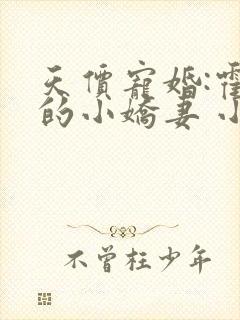 天價寵婚:
的小嬌妻 小
不曾枉少年